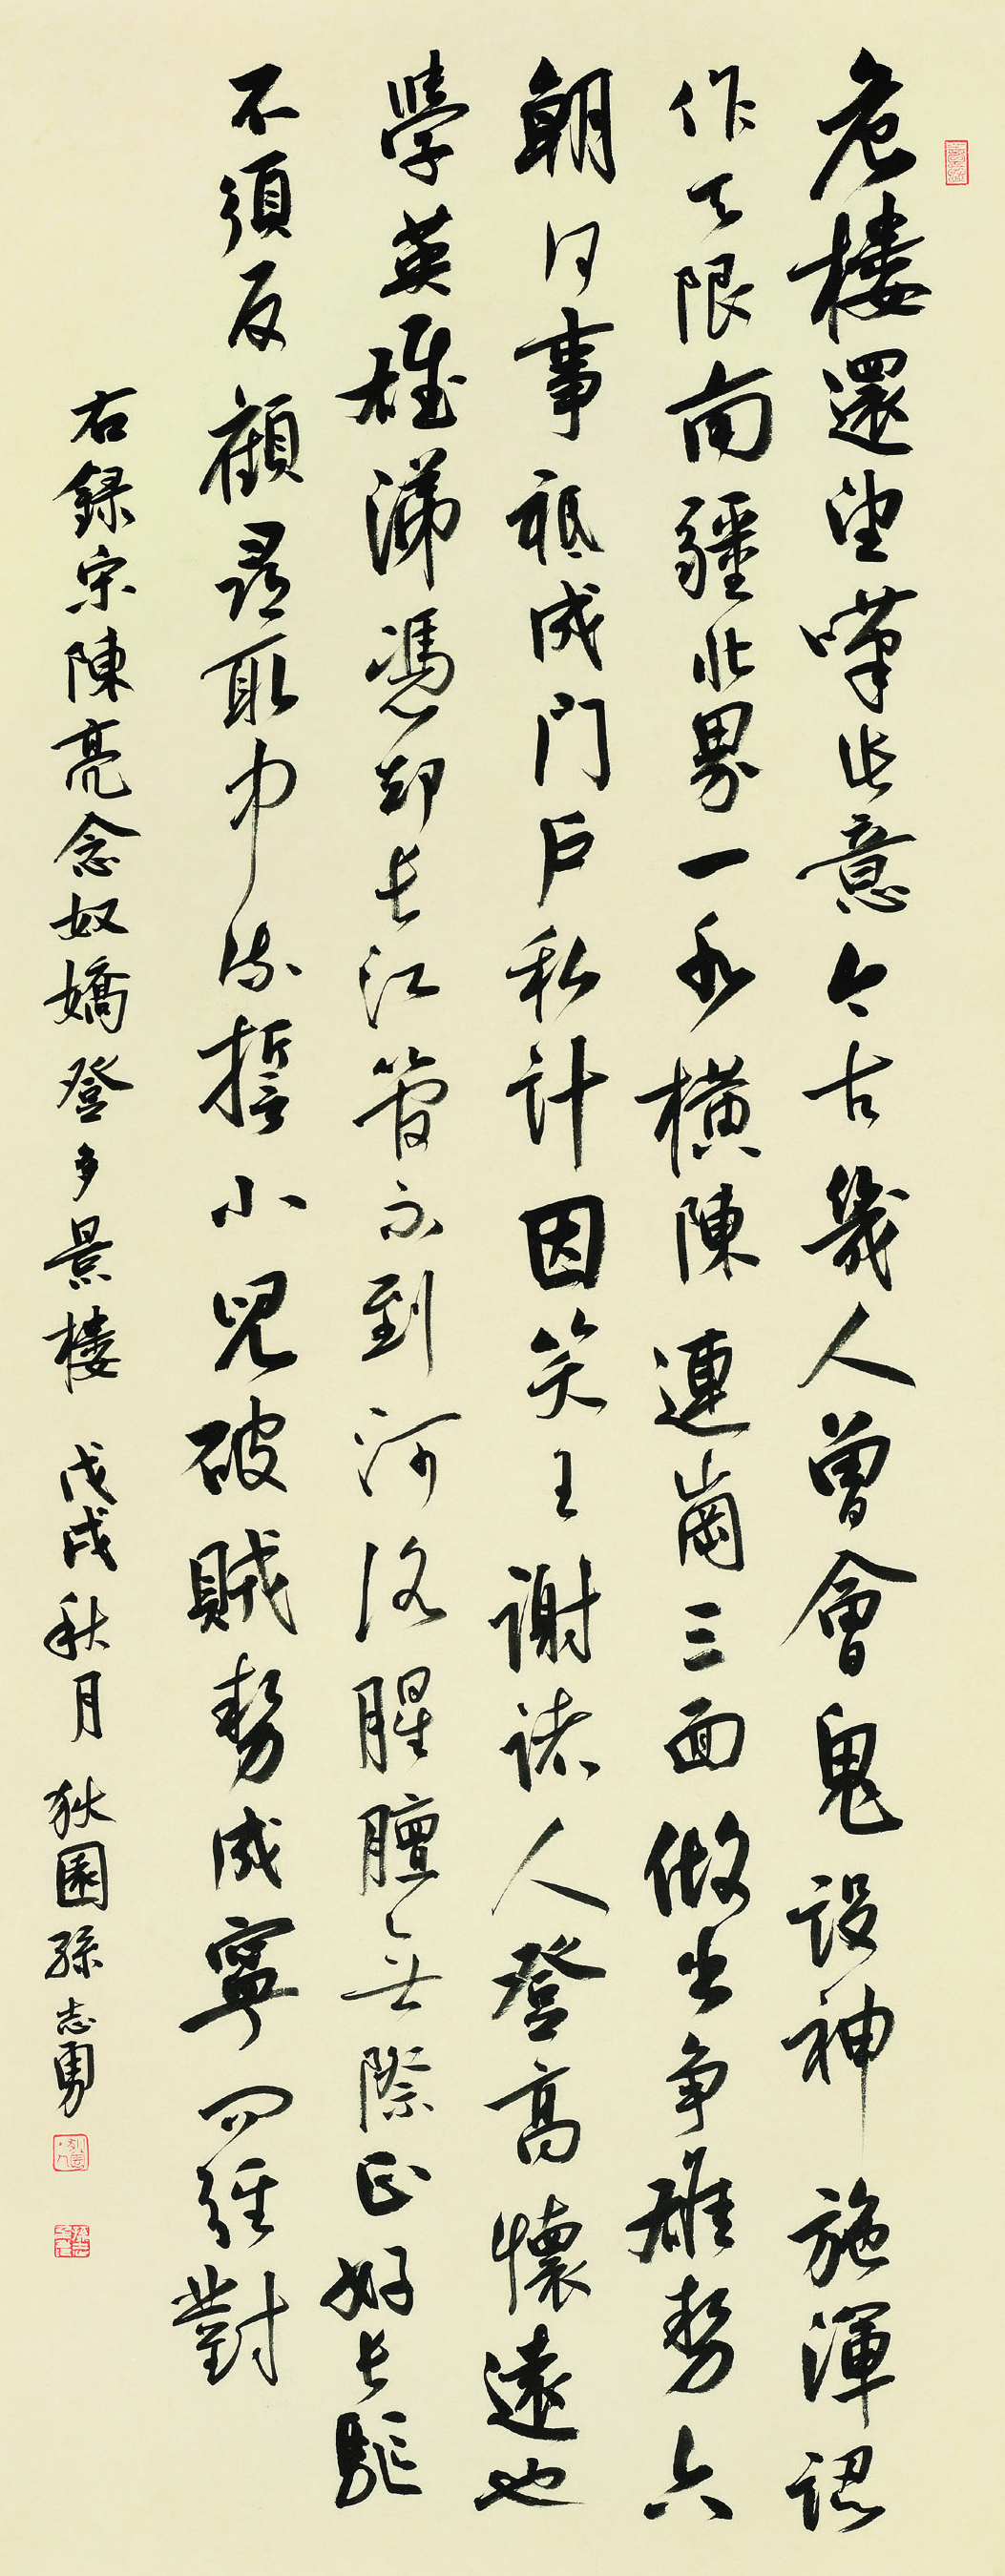 危樓還望嘆此意今古幾人曾會鬼設神施渾認
作天限南疆北界一水橫陳連崗三面做出爭雄勢六
朝何事祗成門戶私計因笑王謝諸人登高懷遠也
學英雄涕憑却長江管不到河洛腥膻無際正好長驅
不須反顧尋取中流誓小兒破賊勢成寧問強對
右錄宋陳亮念奴嬌登多景樓 戊戌秋月 狄園孫志勇